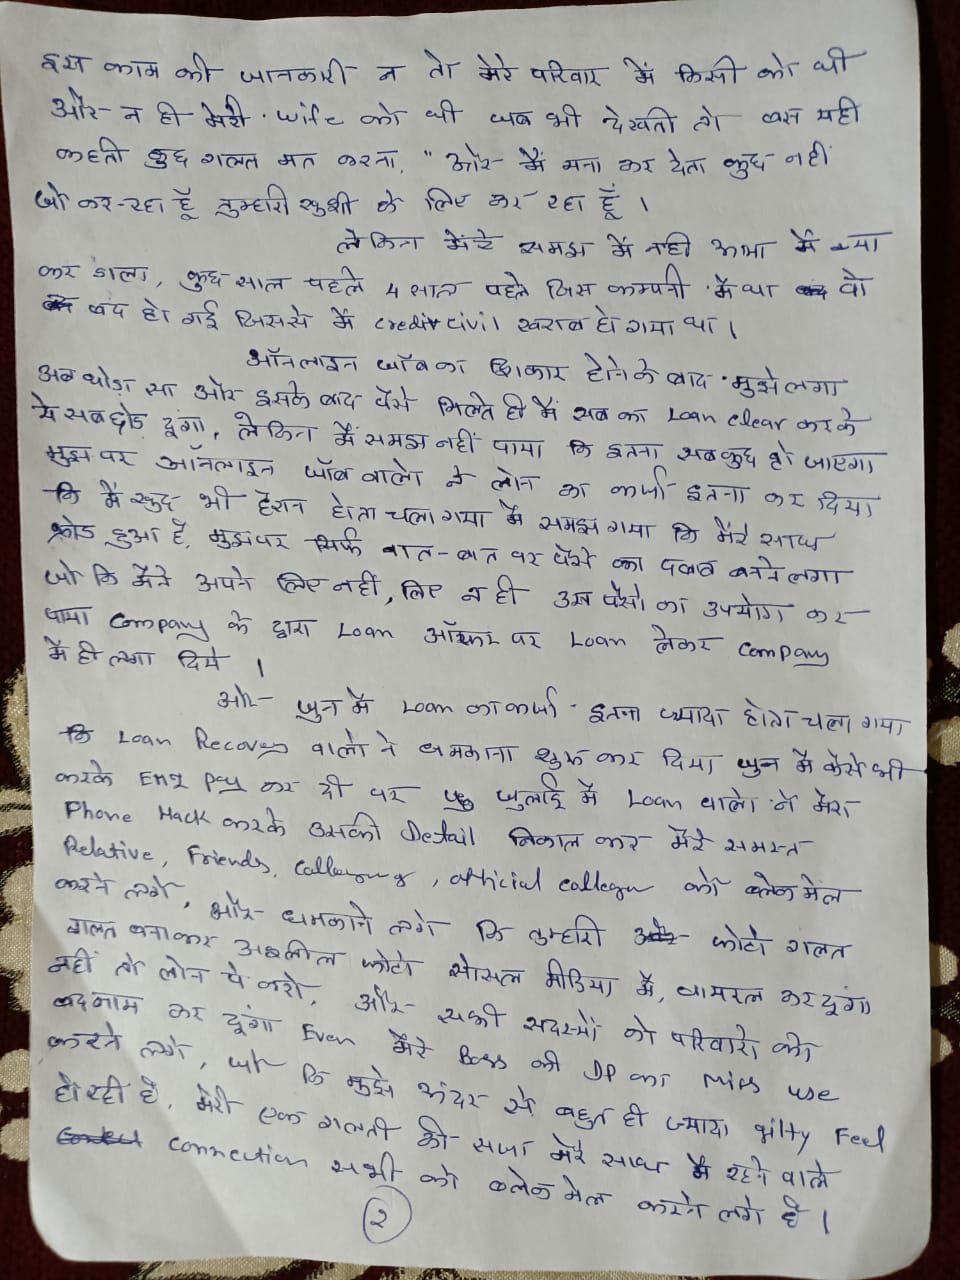 इस काम की जानकारी न तो मेरे परिवार में किसी को थी
और न ही मेरी wife को थी जब भी देखती तो बस यही
कहती कुछ गलत मत करना, " और मैं मना कर देता कुछ नहीं
जो कर-रहा हूँ तुम्हारी खुशी के लिए कर रहा हूँ ।
लेकिन मेरे समझ में नही आया मैं क्या
कर डाला, कुछ साल पहले 4 साल पहले जिस कम्पनी में था वो
बंद हो गई जिससे में credit civil खराब हो गया था ।
ऑनलाइन जॉब का शिकार होने के बाद मुझे लगा
अब थोड़ा सा और इसके बाद पैसे मिलते ही मैं सब का Loan clear करके
ये सब छोड़ दूंगा, लेकिन मैं समझ नहीं पाया कि इतना सबकुछ हो जाएगा
मुझ पर ऑनलाइन जॉब वालो ने लोन का कर्जा इतना कर दिया
कि मै खुद भी हैरान होता चला गया मैं समझ गया कि मेरे साथ
फ्रोड हुआ है, मुझपर सिर्फ बात-बात पर पैसे का दबाब बनने लगा
जो कि मैंने अपने लिए नहीं, लिए न ही उस पैसो का उपयोग कर
पाया Company के द्वारा Loan ऑफर पर Loan लेकर Company
में ही लगा दिये ।
और जुन में Loan का कर्जा इतना ज्यादा होता चला गया
कि Loan Recovery वालो ने धमकाना शुरू कर दिया जुन में कैसे भी
करके EMI Pay कर दी पर जुलाई में Loan वालो ने मेरा
Phone Hack करके उसकी Detail निकाल कर मेरे समस्त
Relative, Friends, official को ब्लेकमेल
करने लगे, और धमकाने लगे कि तुम्हारी फोटो गलत
गलत बनाकर अश्लील फोटो सोसल मीडिया में, वायरल कर दूंगा
नहीं तो लोन पे करो, और सभी सदस्यों को परिवारो को
बदनाम कर दूंगा Even मेरे Boss की DP का Miss use
करने लगे, कि मुझे अंदर से बहुत ही ज्यादा gilty Feel
हो रही है, मेरी एक गलती की सजा मेरे साथ में रहने वाले
connection सभी को ब्लेकमेल करने लगे है ।
२